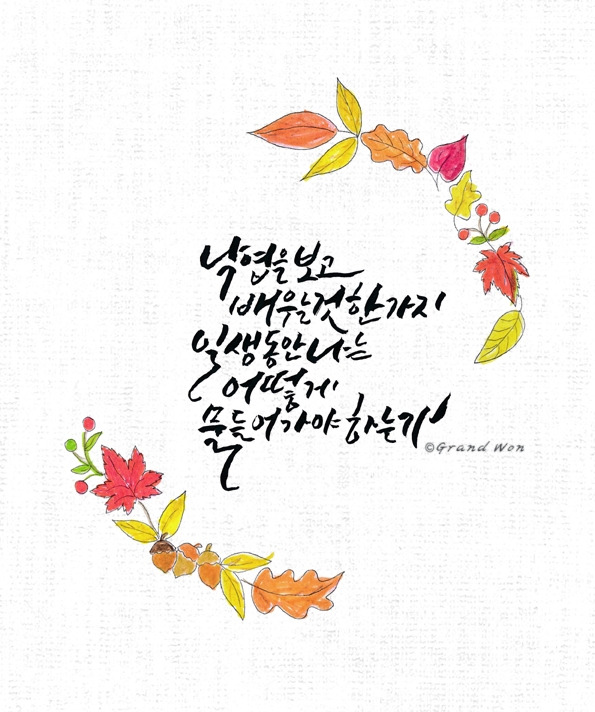 낙엽을 보고
배우는 것 한 가지
일생동안 나는
어떻게
물들어가야 하는가
©Grand Won